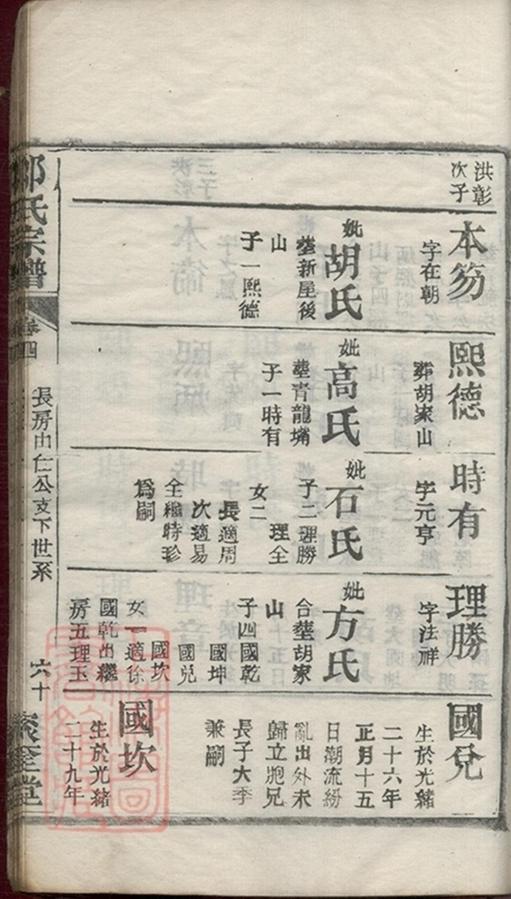 洪彰
次子
本笏
字在朝
妣胡氏
塟新屋後
山
子一熙德
熙德
葬胡家山
妣高氏
塟青龍嘴
子一時有
時有
字元亨
妣石氏
子二理勝
理全
女二
長適周
次適易
全繼時珍
爲嗣
理勝
字注祥
妣方氏
合塟胡家
山
子四國乾
國坤
國兌
國坎
女一適徐
國乾出繼
房五理玉
國兌
生於光緒
二十六年
正月十五
日潮流紛
亂出外未
歸立胞兄
長子大季
兼嗣
國坎
生於光緒
二十九年
氏宗譜
卷四
長房由仁公支下世系
六十